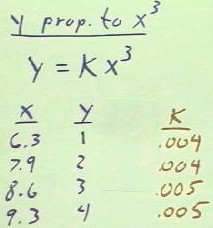 y prop. to x³
y = Kx³
x y K
6.3 1 .004
7.9 2 .004
8.6 3 .005
9.3 4 .005